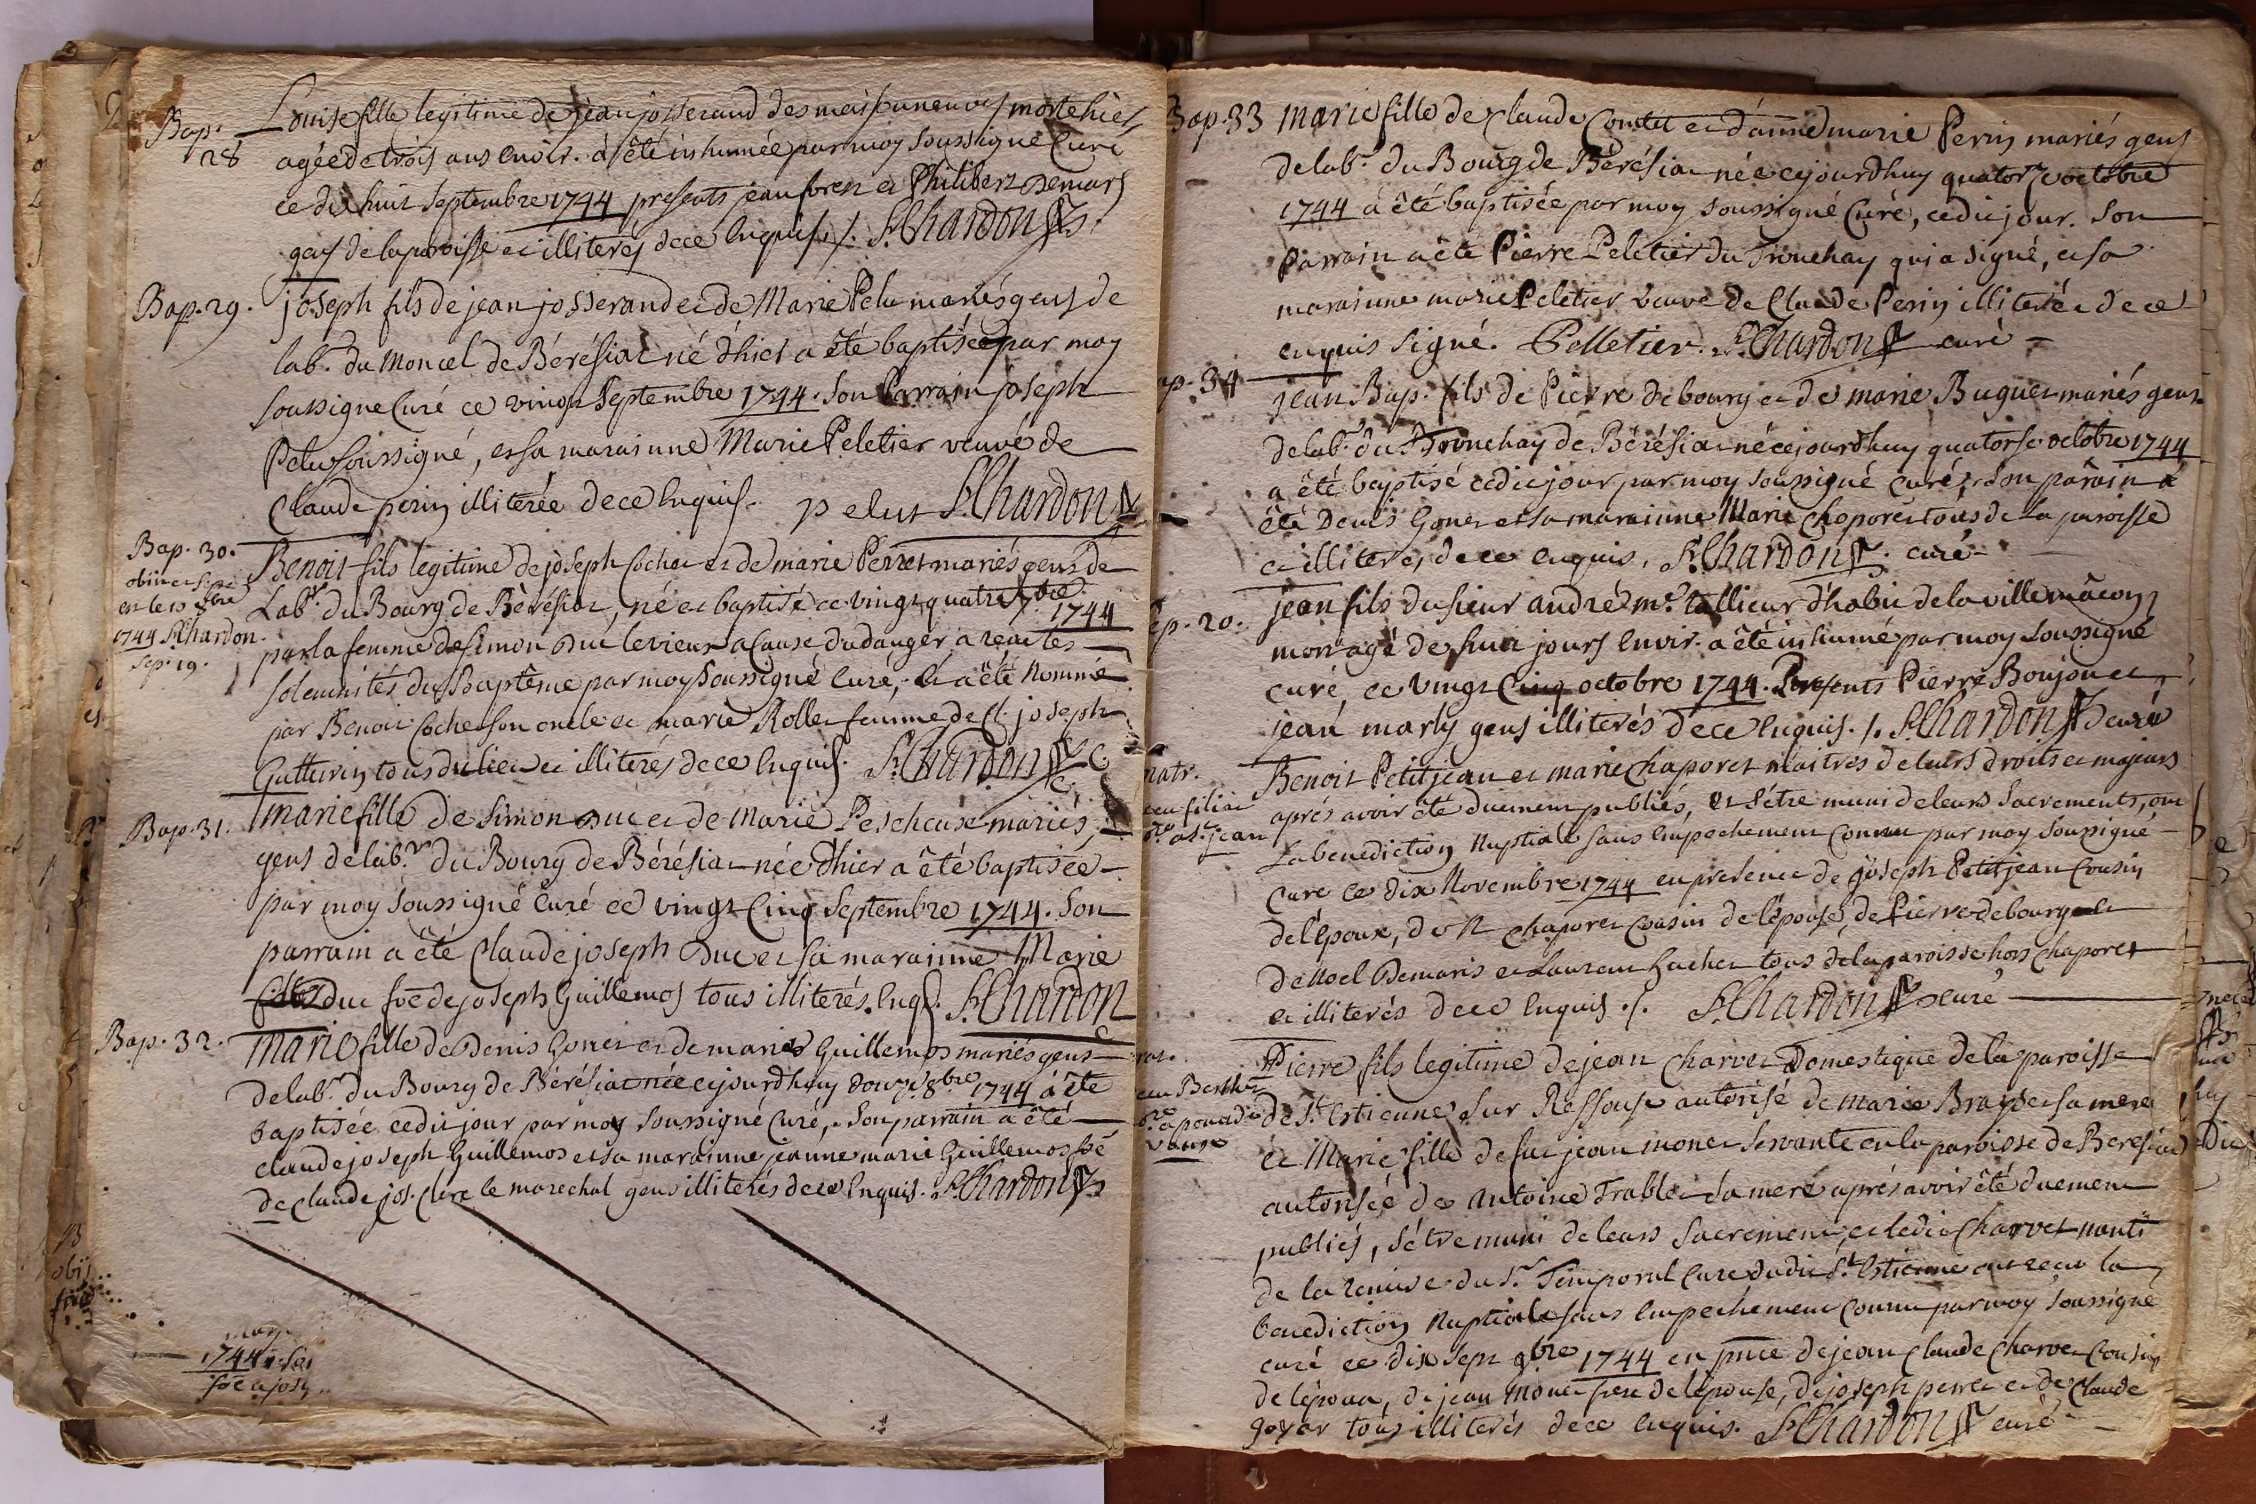 Bap. 28
Louise fille legitime de jean josserand des maisonneuves morte hier
agée de trois ans envir. a êté inhumée par moy soussigné Curé
ce dix huit septembre 1744 presents jean foren et Philibert Demars
gens de la paroisse et illiterés de ce Enquis ./. S. Chardon
Bap. 29.
joseph fils de jean josserand et de Marie Pelu mariés gens de
lab.r du Moncel de Bérésiat né d'hier a êté baptisée par moy
soussigné Curé ce vingt Septembre 1744. Son Parrain joseph
Pelu soussigné, et sa marainne Marie Peletier veuve de
Claude perin illiterée de ce Enquis. pelut S. Chardon
Bap. 30.
obiit et sepr.
est le 10 8bre
1744 S. Chardon.
Sep. 19.
Benoit fils legitime de joseph Cochet et de marie Perret mariés gens de
Lab.r du Bourg de Bérésiat, né et baptisé ce vingt quatre 7bre 1744
par la femme de Simon Duc le vieux a Cause du danger a reçu les
solemnités du Baptême par moy Soussigné Curé, et a êté Nommé
par Benoit Cochet son oncle et marie Rollet femme de Cl. joseph
Gutterin tous du lieu et illiterés de ce Enquis. S. Chardon
Bap. 31.
marie fille de Simon Duc et de Marie Pescheuse mariés,
gens de lab.r du Bourg de Bérésiat née d'hier a êté baptisée
par moy soussigné Curé ce vingt Cinq Septembre 1744. Son
parrain a êté Claude joseph Duc et sa marainne Marie
Duc fõe de joseph Guillemos tous illiterés. Enqs. S. Chardon
Bap. 32.
marie fille de Denis Gonet et de marie Guillemos mariés gens
de lab.r du Bourg de Bérésiat née cejourd'huy douze 8bre 1744 a êté
baptisée cedit jour par moy soussigné Curé, Son parrain a êté
claude joseph Guillemos et sa marainne jeanne marie Guillemos fõe
de Claude jos. Clerc le marechal gens illiteres de ce Enquis. S. Chardon
1744
Bap. 33
marie fille de Claude Comtet et d'anne marie Perin mariés gens
de lab.r du Bourg de Bérésiat née cejourd'huy quatorze octobre
1744 a êté baptisée par moy soussigné Curé, cedit jour. Son
Parrain a êté Pierre Peletier du Tronchay qui a signé, et sa
marainne marie Peletier veuve de Claude Perin illiterée de ce
enquis signé. Pelletier. S. Chardon curé
ap. 34
jean Bap. fils de Pierre debourg et de marie Buguet mariés gens
de lab.r du Tronchay de Bérésiat né cejourdhuy quatorse octobre 1744
a êté baptisé cedit jour par moy soussigné curé, son parain a
êté Denis Gonet et sa marainne Marie Chaporet tous de la paroisse
et illiteres de ce enquis. S. Chardon curé
ep. 20.
jean fils du sieur andré m.e tallieur d'habit de la ville mâcon
mort agé de huit jours Envir. a êté inhumé par moy soussigné
curé, ce vingt Cinq octobre 1744. Presents Pierre Boujon et
jean marly gens illiterés de ce Enquis. /. S. Chardon curé
Benoit Petitjean et marie Chaporet Maitres de leurs droits et majeurs
aprés avoir êté duement publiés, et s'être muni de leurs Sacrements, ont
La benediction Nuptiale sans Empechement Connu par moy soussigné
Curé ce dix Novembre 1744 en presence de joseph Petitjean Cousin
de l'Epoux, de N Chaporet Cousin de l'épouse, de Pierre debourg et
de Noel Demaris et Laurent Zacher tous de la paroisse hors Chaporet
et illiterés de ce Enquis ./. S. Chardon curé
Pierre fils legitime de jean Charvet Domestique de la paroisse
de S.t Estienne sur Ressouse autorisé de marie Braydet sa mere
et Marie fille de fut jean monet servante en la paroisse de Beresiat
autorisée de antoine Trablet sa mere aprés avoir êté duement
publiés, s'être muni de leurs Sacrement, et ledit Charvet nanti
de la remise du S.r Temporal Curé dudit S.t Estienne ont receu la
benediction Nuptiale sans Empechement Connu par moy soussigné
curé ce dix sept 9bre 1744 en pnce de jean Claude Charvet Cousin
de l'époux, de jean Monet frere de l'épouse, de joseph perret et de Claude
goyar tous illiterés de ce enquis. S. Chardon curé